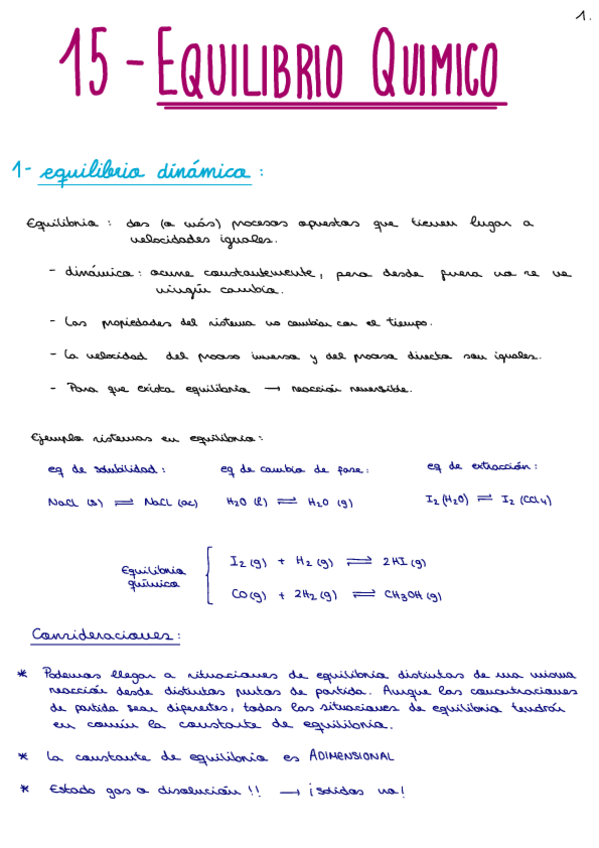 1.
15 - EQUILIBRIO QUIMICO
1- equilibrio dinámico :
Equilibrio : dos (o más) procesos opuestos que tienen lugar a
velocidades iguales.
- dinámico : ocurre constantemente, pero desde fuera no se ve
ningún cambio.
- Las propiedades del sistema no cambian con el tiempo.
- La velocidad del proceso inverso y del proceso directo son iguales.
- Para que exista equilibrio → reacción reversible.
Ejemplo sistemas en equilibrio :
eq de solubilidad : eq de cambio de fase : eq de extracción :
NaCl (s) ⇌ NaCl (ac) H2O (l) ⇌ H2O (g) I2 (H2O) ⇌ I2 (CCl4)
I2 (g) + H2 (g) ⇌ 2HI (g)
Equilibrio
químico
CO (g) + 2H2 (g) ⇌ CH3OH (g)
Consideraciones :
* Podemos llegar a situaciones de equilibrio distintas de una misma
reacción desde distintos puntos de partida. Aunque las concentraciones
de partida sean diferentes, todas las situaciones de equilibrio tendrán
en común la constante de equilibrio.
* La constante de equilibrio es ADIMENSIONAL
* Estado gas o disolución !! → ¡sólidos no!